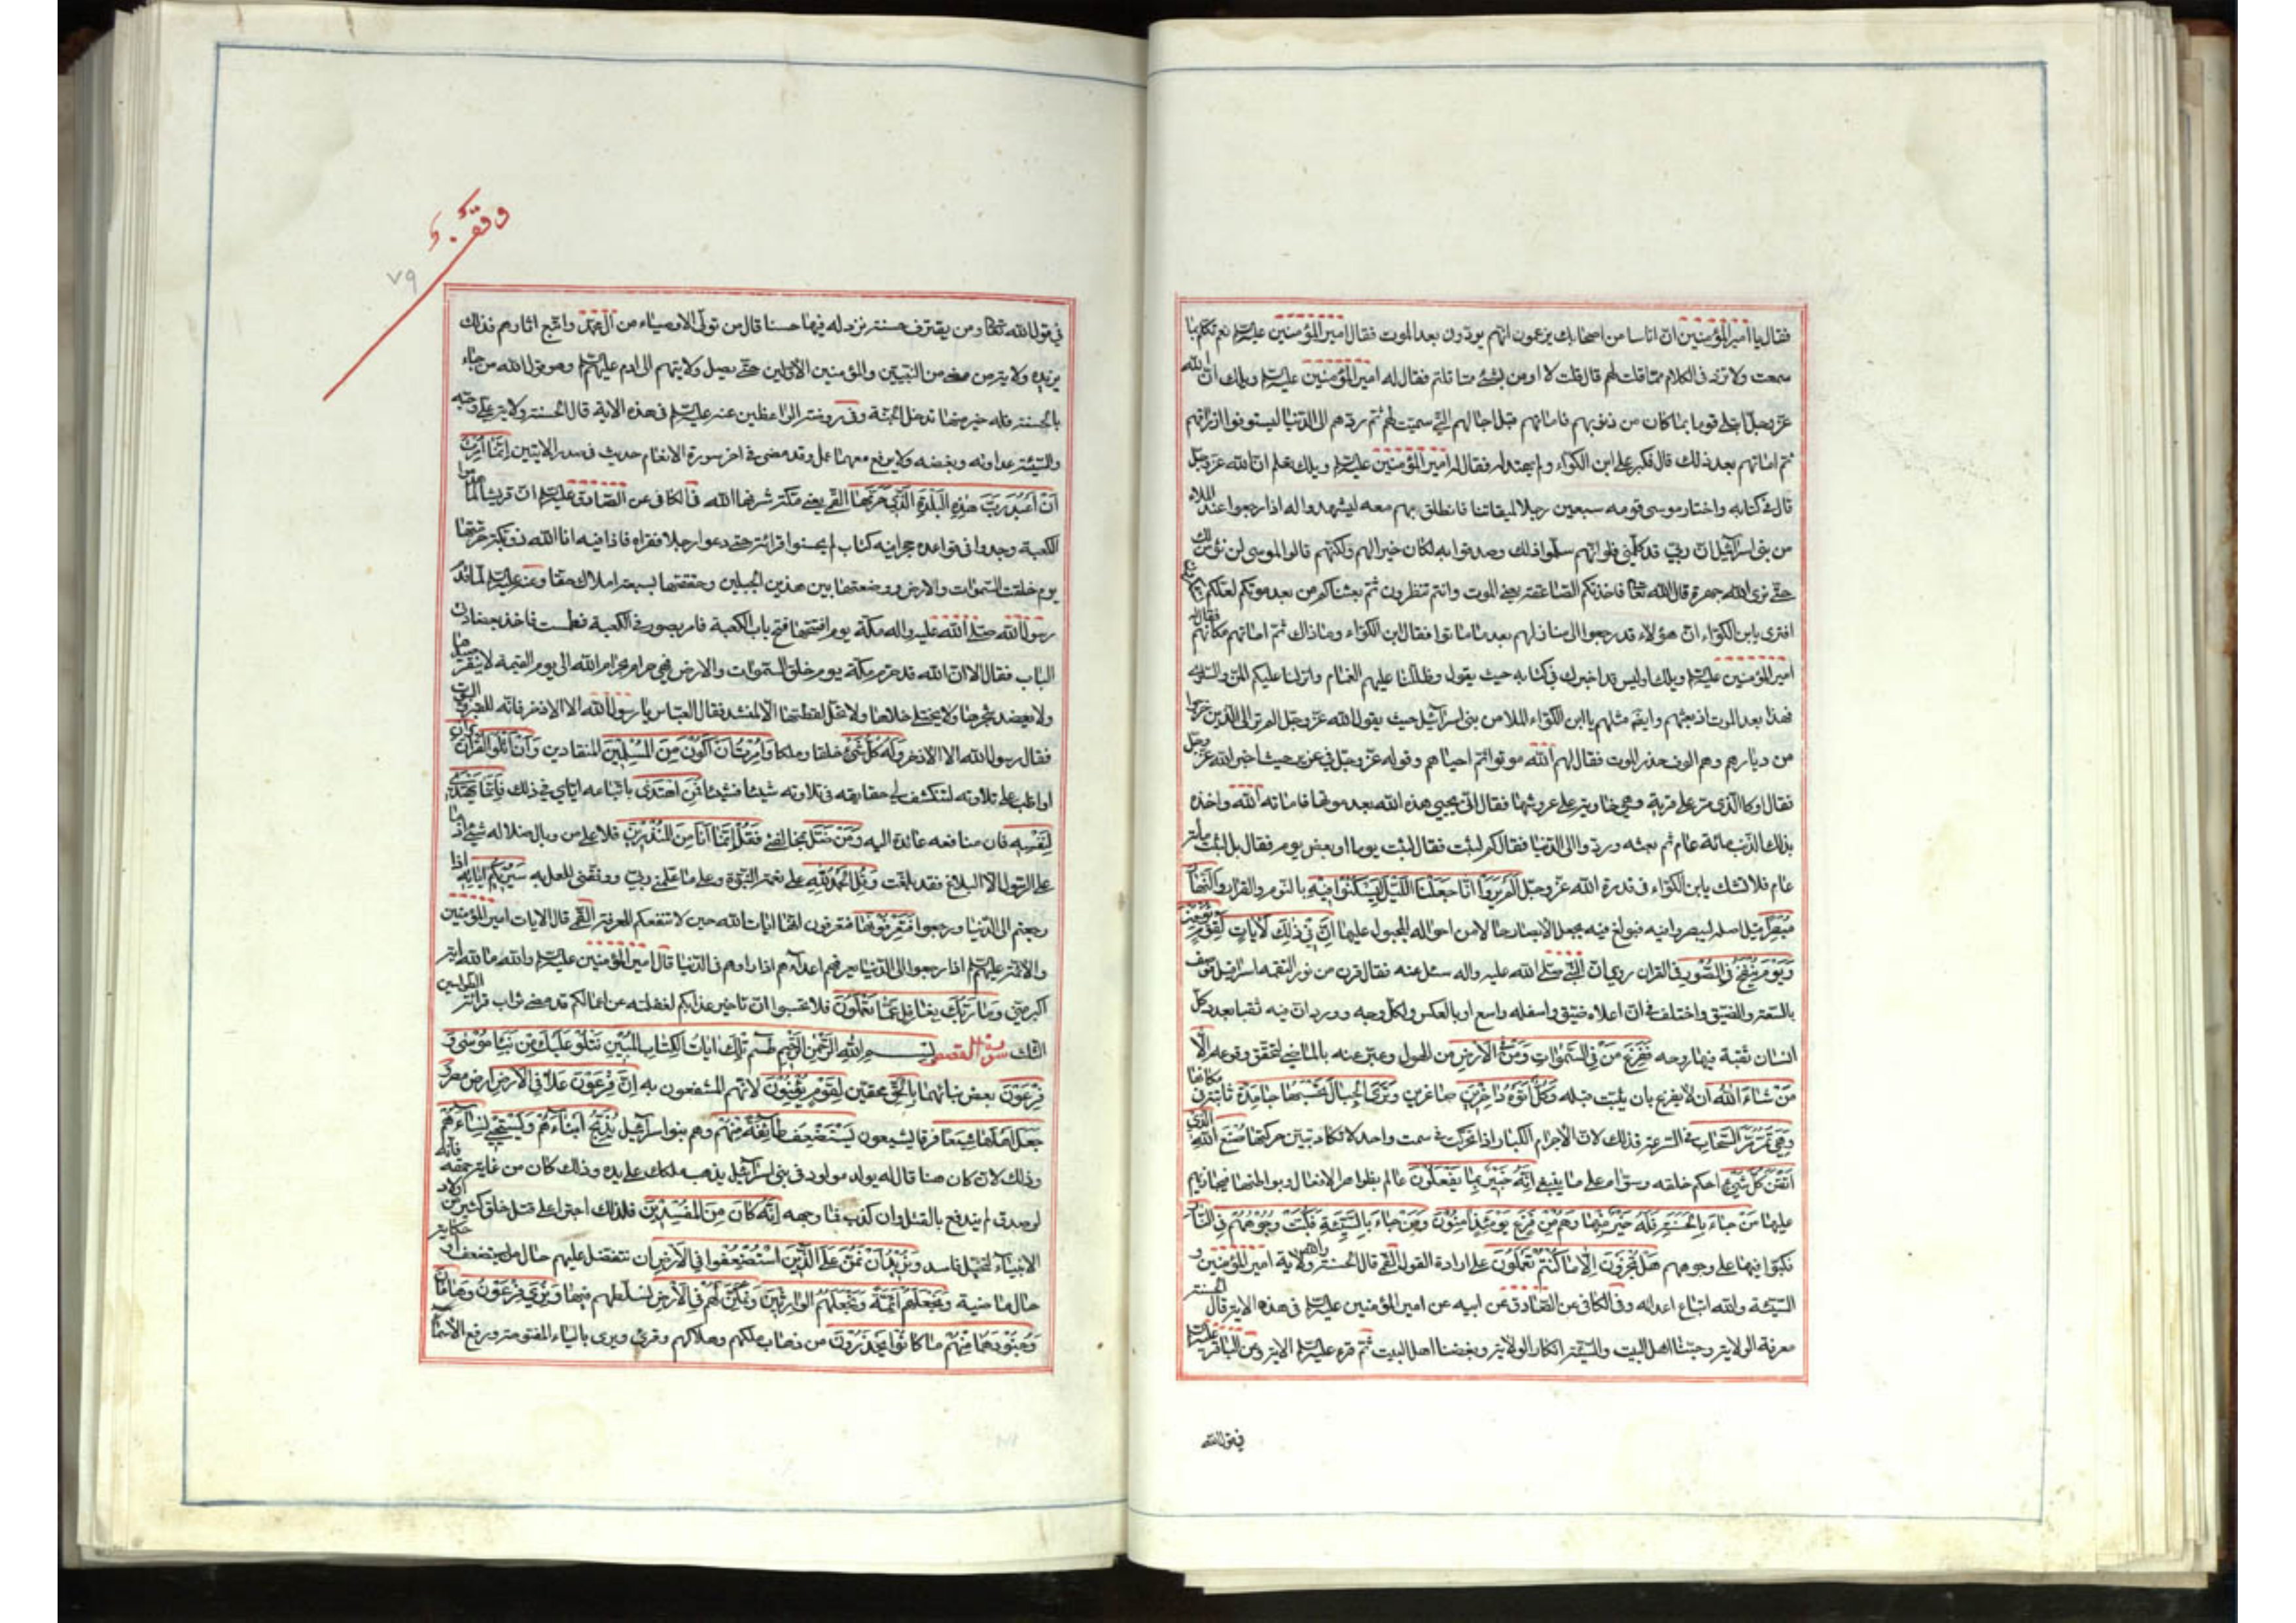 فقال يا امير المؤمنين ان اناسا من اصحابك يزعمون انهم يردون بعد الموت فقال امير المؤمنين عليه السلم نعم تكلم بما
سمعت ولا تزد في الكلام مما قلت لهم قال قلت لا اومن بشئ مما قلتم فقال له امير المؤمنين عليه السلم ويلك ان الله
عز وجل ابتلى قوما بما كان من ذنوبهم فاماتهم قبل اجالهم التي سميت لهم ثم ردهم الى الدنيا ليستوفوا ارزاقهم
ثم اماتهم بعد ذلك قال فكبر على ابن الكواء ولم يهتد له فقال له امير المؤمنين عليه السلم ويلك تعلم ان الله عز وجل
قال في كتابه واختار موسى قومه سبعين رجلا لميقاتنا فانطلق بهم معه ليشهدوا له اذا رجعوا عند الملاء
من بني اسرائيل ان ربي قد كلمني فلو انهم سلموا ذلك وصدقوا به لكان خيرا لهم ولكنهم قالوا لموسى لن نؤمن لك
حتى نرى الله جهرة قال الله تعا فاخذتكم الصاعقة يعني الموت وانتم تنظرون ثم بعثناكم من بعد موتكم لعلكم تشكرون
افترى يا بن الكواء ان هؤلاء قد رجعوا الى منازلهم بعد ما ماتوا فقال ابن الكواء وما ذاك ثم اماتهم مكانهم فقال
امير المؤمنين عليه السلم ويلك اوليس قد اخبرك في كتابه حيث يقول وظللنا عليهم الغمام وانزلنا عليكم المن والسلوى
فهذا بعد الموت اذ بعثهم وايضا مثلهم يا ابن الكواء الملا من بني اسرائيل حيث يقول الله عز وجل الم تر الى الذين خرجوا
من ديارهم وهم الوف حذر الموت فقال لهم الله موتوا ثم احياهم وقوله عز وجل في عزير حيث اخبر الله عز وجل
فقال او كالذي مر على قرية وهي خاوية على عروشها فقال انى يحيي هذه الله بعد موتها فاماته الله واخذه
بذلك الذنب مائة عام ثم بعثه ورده الى الدنيا فقال كم لبثت فقال لبثت يوما او بعض يوم فقال بل لبثت مأتة
عام فلا تشك يا بن الكواء في قدرة الله عز وجل الم يروا انا جعلنا الليل ليسكنوا فيه بالنوم والقرار والنهار
مبصرا قيل اصله ليبصروا فيه فبولغ فيه بجعل الابصار حالا من احواله المجبول عليها ان في ذلك لايات لقوم يؤمنون
ويوم ينفخ في الصور في القران روي ان النبي صلى الله عليه واله سئل عنه فقال قرن من نور التقمه اسرافيل فوصف
بالسعة والضيق واختلف في ان اعلاه ضيق واسفله واسع او بالعكس ولكل وجه وورد ان فيه ثقبا بعدد كل
انسان ثقبة فيها روحه ففزع من في السموات ومن في الارض من الهول وعبر عنه بالماضي لتحقق وقوعه الا
من شاء الله ان لا يفزع بان يثبت قلبه وكل اتوه داخرين صاغرين وترى الجبال تحسبها جامدة ثابتة في مكانها
وهي تمر مر السحاب في السرعة وذلك لان الاجرام الكبار اذا تحركت في سمت واحد لا تكاد تتبين حركتها صنع الله الذي
اتقن كل شئ احكم خلقه وسواه على ما ينبغي انه خبير بما يفعلون عالم بظواهر الافعال وبواطنها فيجازيهم
عليها من جاء بالحسنة فله خير منها وهم من فزع يومئذ امنون ومن جاء بالسيئة فكبت وجوههم في النار
فكبوا فيها على وجوههم هل تجزون الا ما كنتم تعملون على ارادة القول القمي قال الحسنة والله ولاية امير المؤمنين و
السيئة والله اتباع اعدائه وفي الكافي عن الصادق عن ابيه عن امير المؤمنين عليه السلم في هذه الاية قال الحسنة
معرفة الولاية وحبنا اهل البيت والسيئة انكار الولاية وبغضنا اهل البيت ثم قرء عليه السلم الاية وعن الباقر عليه السلم
في قول الله
وقف
٧٩
في قول الله تعا ومن يقترف حسنة نزد له فيها حسنا قال من تولى الاوصياء من آل محمد واتبع اثارهم فذاك
يزيده ولاية من مضى من النبيين والمؤمنين الاولين حتى يصل ولايتهم الى ادم عليهم السلم وهو قول الله من جاء
بالحسنة فله خير منها تدخل الجنة وفي روضة الواعظين عنه عليه السلم في هذه الاية قال الحسنة ولاية علي وحبه
والسيئة عداوته وبغضه ولا يرفع معهما عمل وقد مضى في اخر سورة الانعام حديث في صدر الايتين انما امرت
ان اعبد رب هذه البلدة الذي حرمها القمي يعني مكة شرفها الله في الكافي عن الصادق عليه السلم ان قريشا لما هدموا
الكعبة وجدوا في قواعده حجرا فيه كتاب لم يحسنوا قرائته حتى دعوا رجلا فقراه فاذا فيه انا الله ذو بكة حرمتها
يوم خلقت السموات والارض ووضعتها بين هذين الجبلين وحففتها بسبعة املاك حفا وعنه عليه السلم لما قدم
رسول الله صلى الله عليه واله مكة يوم افتتحها فتح باب الكعبة فامر بصور في الكعبة فطمست فاخذ بعضادتي
الباب فقال الا ان الله قد حرم مكة يوم خلق السموات والارض فهي حرام بحرام الله الى يوم القيمة لا ينفر صيدها
ولا يعضد شجرها ولا يختلى خلاها ولا تحل لقطتها الا لمنشد فقال العباس يا رسول الله الا الاذخر فانه للقبر والبيوت
فقال رسول الله الا الاذخر وله كل شئ خلقا وملكا وامرت ان اكون من المسلمين المنقادين وان اتلو القران وان
اواظب على تلاوته لتنكشف لي حقايقه في تلاوته شيئا فشيئا فمن اهتدى باتباعه اياي في ذلك فانما يهتدي
لنفسه فان منافعه عائدة اليه ومن ضل بمخالفتي فقل انما انا من المنذرين فلا علي من وبال ضلاله شئ اذ ما
على الرسول الا البلاغ فقد بلغت وقل الحمد لله على نعمة النبوة وعلى ما علمني ربي ووفقني للعمل به سيريكم اياته اذا
رجعتم الى الدنيا ورجعوا فتعرفونها فتعرفون انها ايات الله حين لا تنفعكم المعرفة القمي قال الايات امير المؤمنين
والائمة عليهم السلم اذا رجعوا الى الدنيا يعرفهم اعداؤهم اذا راوهم في الدنيا قال امير المؤمنين عليه السلم والله ما لله اية
اكبر مني وما ربك بغافل عما تعملون فلا تحسبوا ان تاخير عذابكم لغفلته عن اعمالكم قد مضى ثواب قرائة الطواسين
الثلث سورة القصص بسم الله الرحمن الرحيم طسم تلك ايات الكتاب المبين نتلو عليك من نبا موسى و
فرعون بعض نبائهما بالحق محقين لقوم يؤمنون لانهم المنتفعون به ان فرعون علا في الارض ارض مصر و
جعل اهلها شيعا فرقا يشيعون يستضعف طائفة منهم وهم بنو اسرائيل يذبح ابناءهم ويستحيي نساءهم
وذلك لان كاهنا قال له يولد مولود في بني اسرائيل يذهب ملكك على يده وذلك كان من غاية حمقه فانه
لو صدق لم يندفع بالقتل وان كذب فما وجهه انه كان من المفسدين فلذلك اجترا على قتل خلق كثير من اولاد
الانبياء لتخيل فاسد ونريد ان نمن على الذين استضعفوا في الارض ان نتفضل عليهم حال من يستضعف او حكاية
حال ماضية ونجعلهم ائمة ونجعلهم الوارثين ونمكن لهم في الارض لنسلطهم فيها ونري فرعون وهامان
وجنودهما منهم ما كانوا يحذرون من ذهاب ملكهم وهلاكهم وقرئ ويرى بالياء المفتوحة ورفع الاسماء